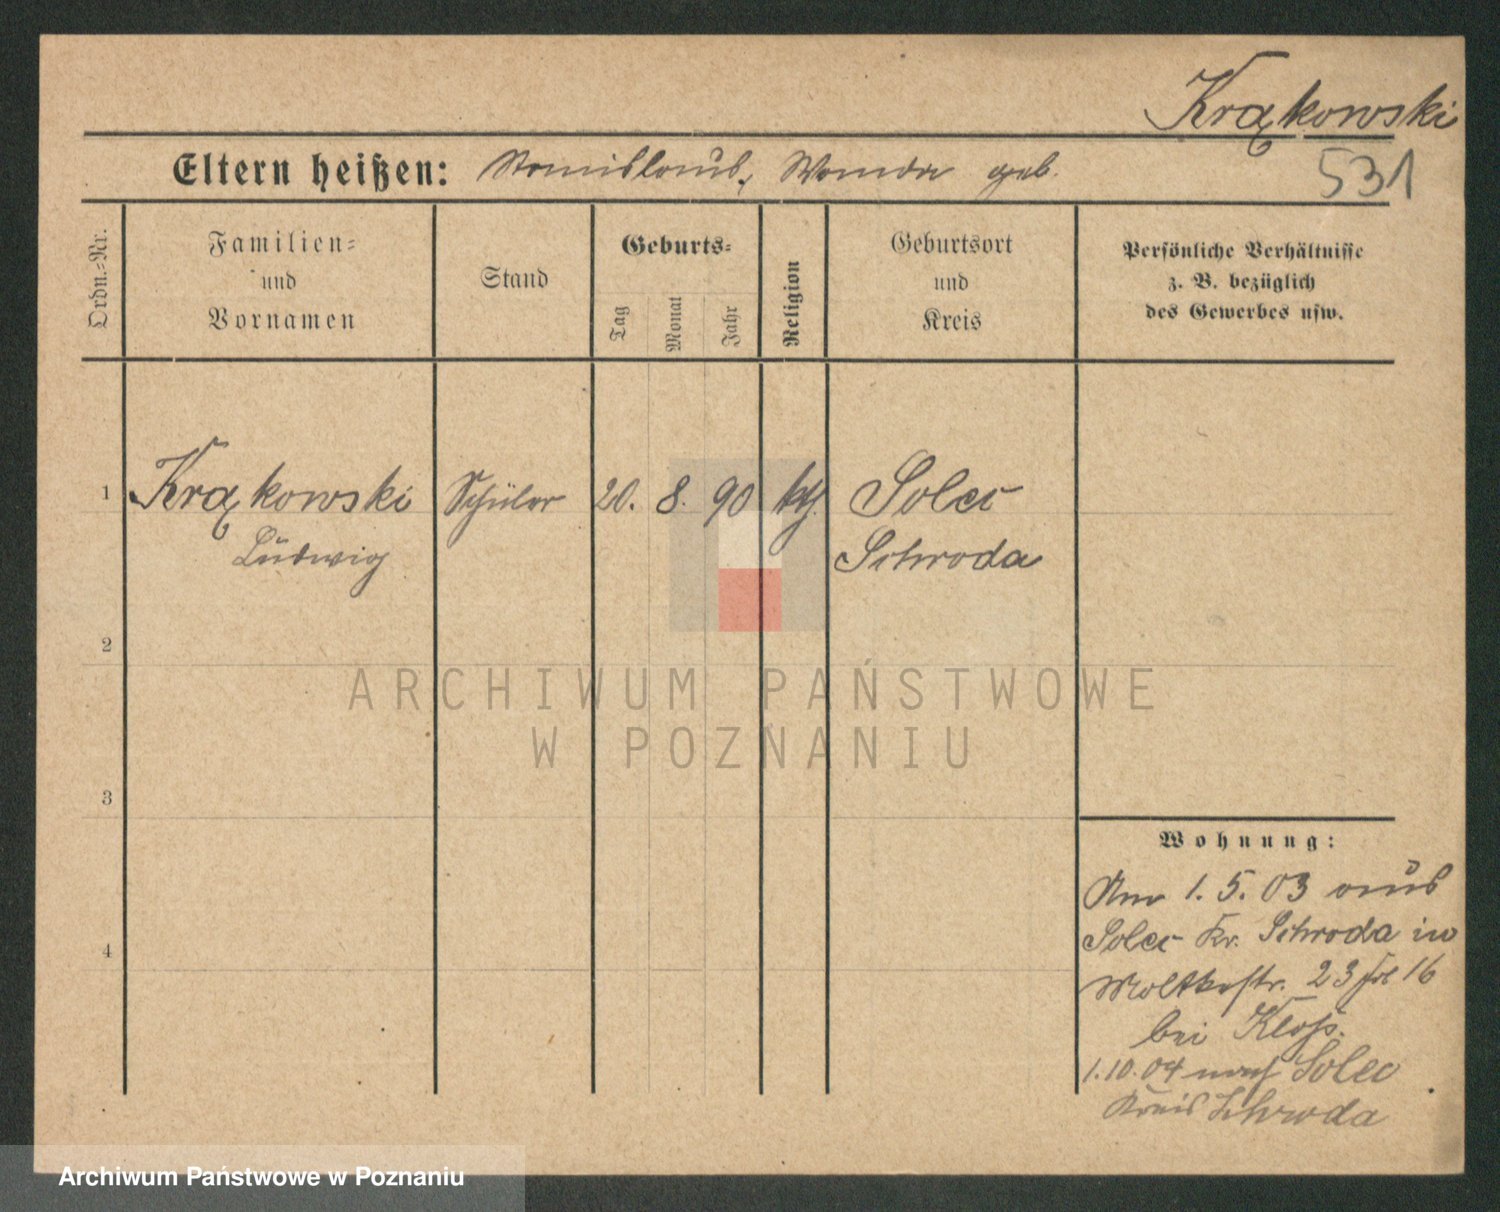 Krąkowski
Eltern heißen: Stanislaus, Wanda geb.
531
Ordn.=Nr.
Familien=
und
Vornamen
Stand
Geburts=
Tag
Monat
Jahr
Religion
Geburtsort
und
Kreis
Persönliche Verhältnisse
z. B. bezüglich
des Gewerbes usw.
1 Krąkowski Schüler 20. 8. 90 kth. Solec
Ludwig Schroda
2
3
4
Wohnung:
Am 1.5.03 aus
Solec Kr. Schroda in
Moltkestr. 23 16
bei Kloß.
1.10.04 nach Solec
Kreis Schroda
ARCHIWUM PAŃSTWOWE
W POZNANIU
Archiwum Państwowe w Poznaniu